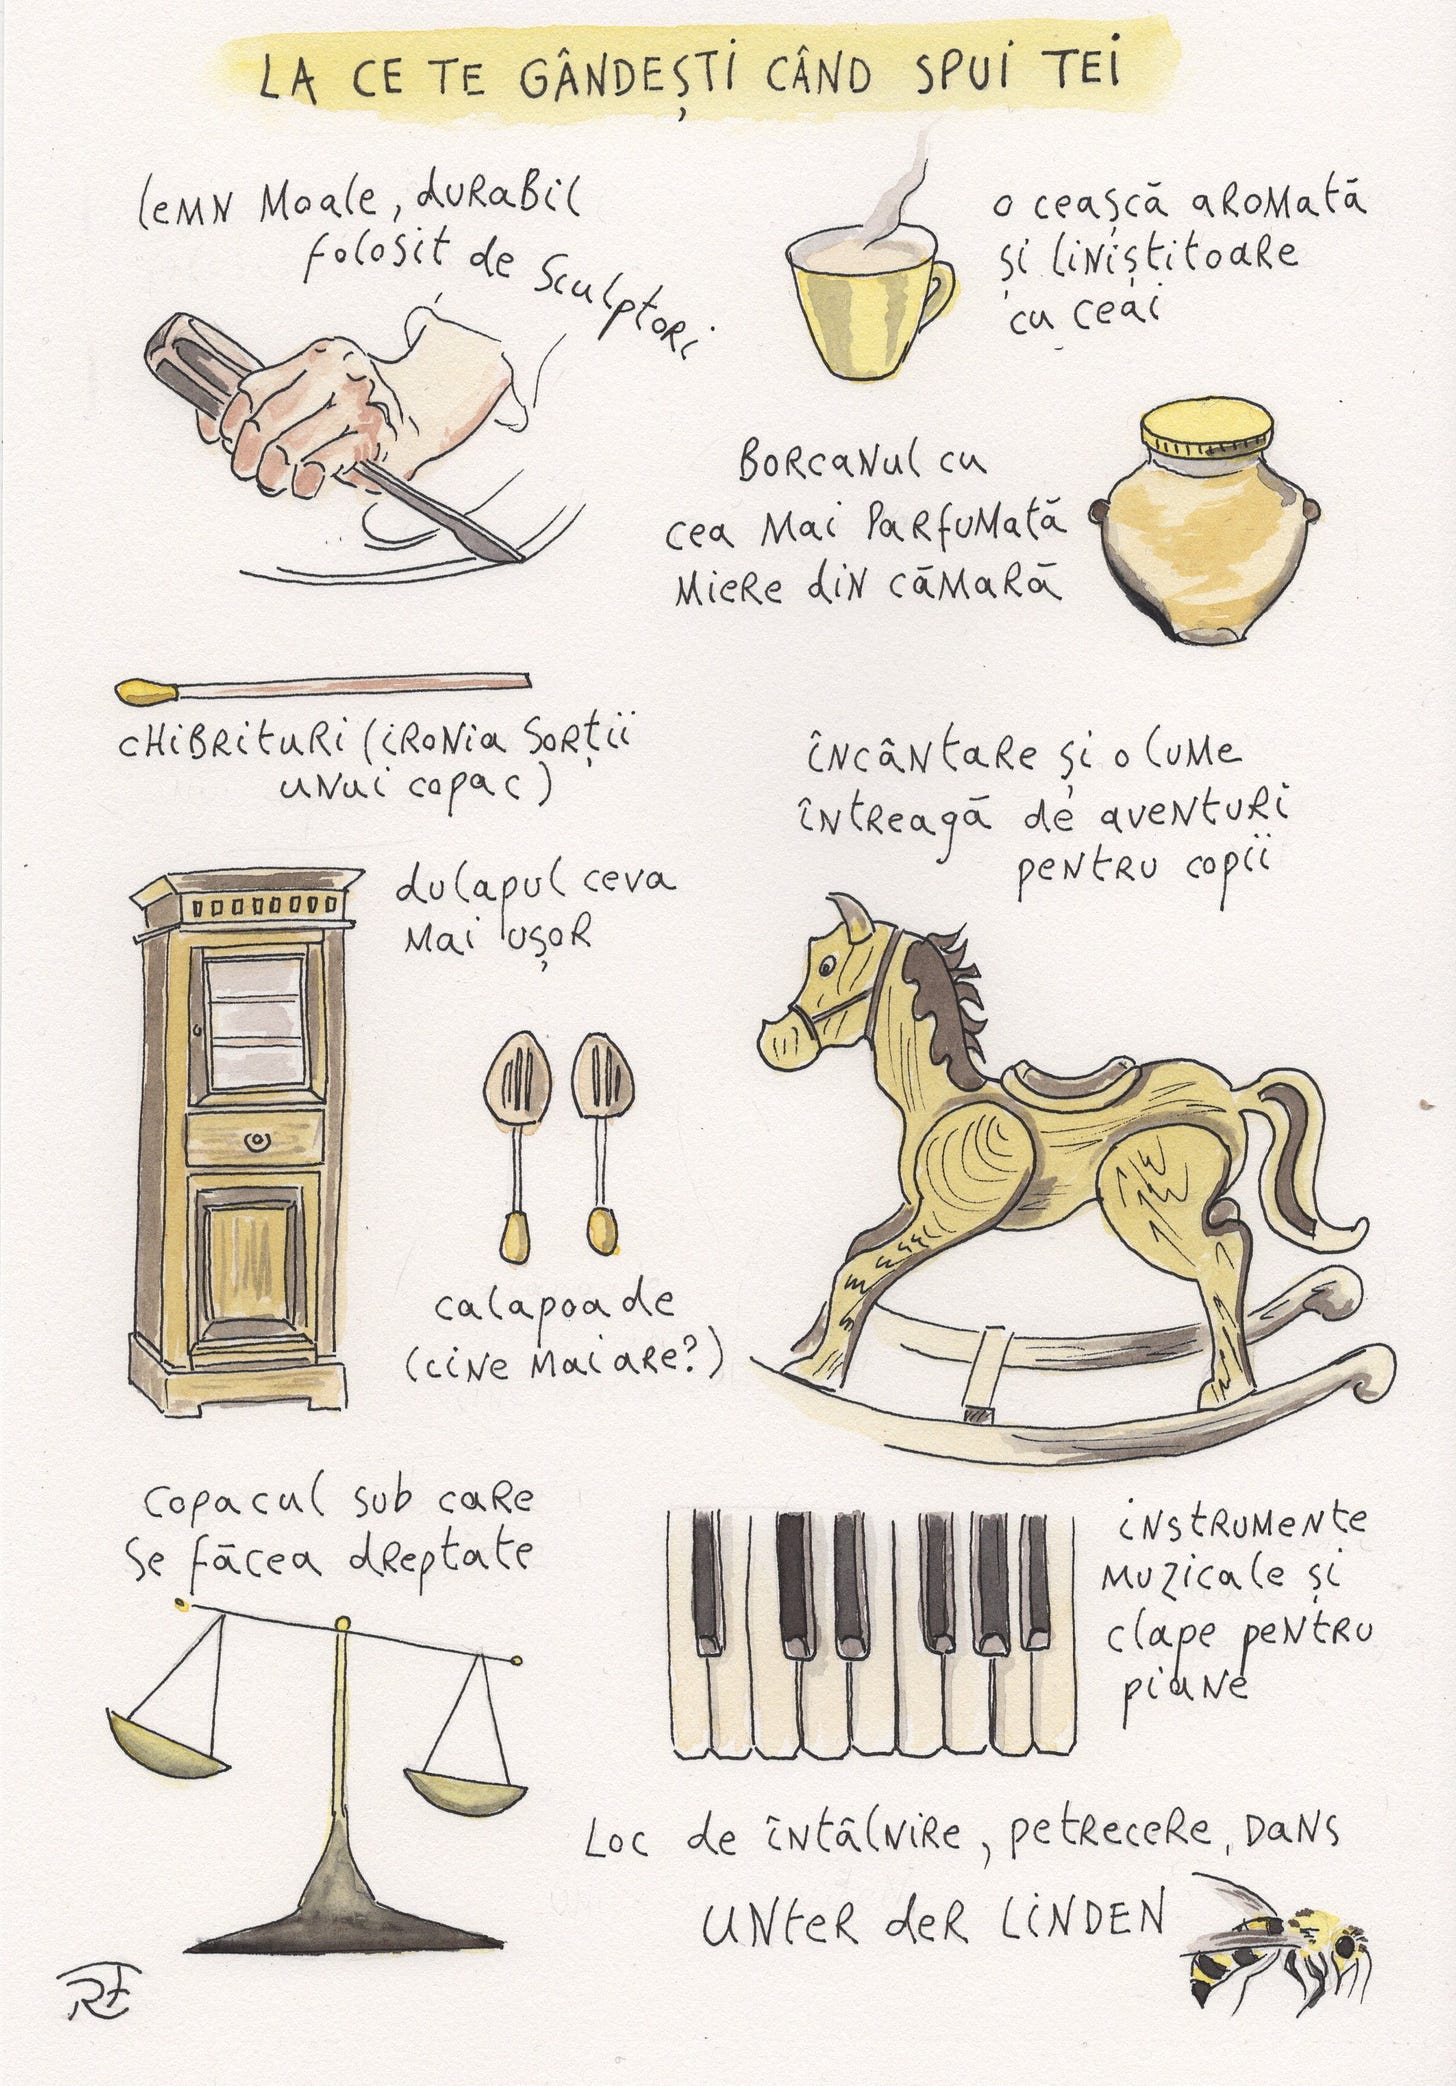 LA CE TE GÂNDEȘTI CÂND SPUI TEI
lemn moale, durabil
folosit de sculptori
o ceașcă aromată
și liniștitoare
cu ceai
Borcanul cu
cea mai parfumată
miere din cămară
chibrituri (ironia sorții
unui copac)
încântare și o lume
întreagă de aventuri
pentru copii
dulapul ceva
mai ușor
calapoade
(cine mai are?)
copacul sub care
se făcea dreptate
instrumente
muzicale și
clape pentru
piane
Loc de întâlnire, petrecere, dans
UNTER der LINDEN